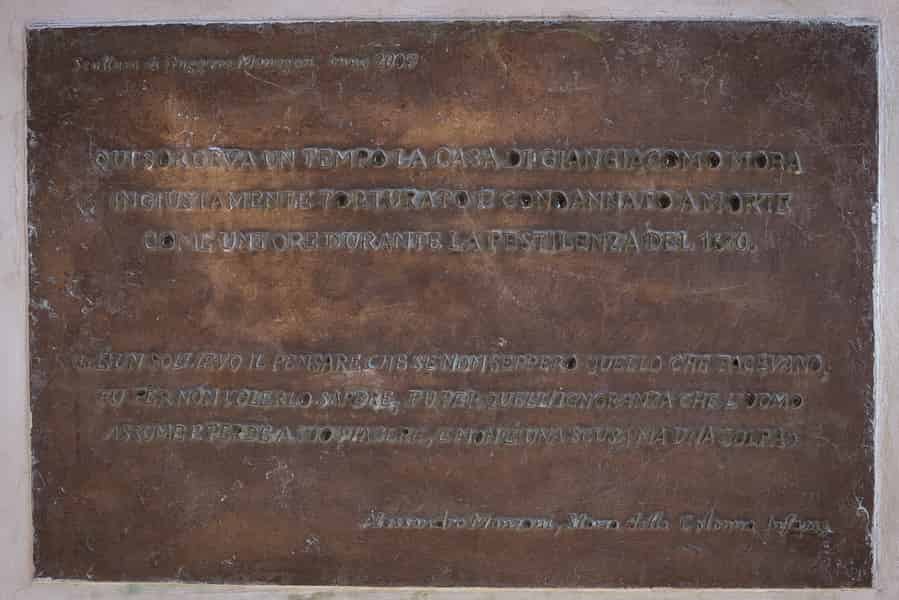 Scultura di Ruggero Menegon, anno 2005
QUI SORGEVA UN TEMPO LA CASA DI GIANGIACOMO MORA
INGIUSTAMENTE TORTURATO E CONDANNATO A MORTE
COME UNTORE DURANTE LA PESTILENZA DEL 1630.
È UN SOLLIEVO IL PENSARE CHE SE NON SEPPERO QUELLO CHE FACEVANO,
FU PER NON VOLERLO SAPERE, FU PER QUELL'IGNORANZA CHE L'UOMO
ASSUME E PERDE A SUO PIACERE, E NON È UNA SCUSA MA UNA COLPA
Alessandro Manzoni, Storia della Colonna Infame